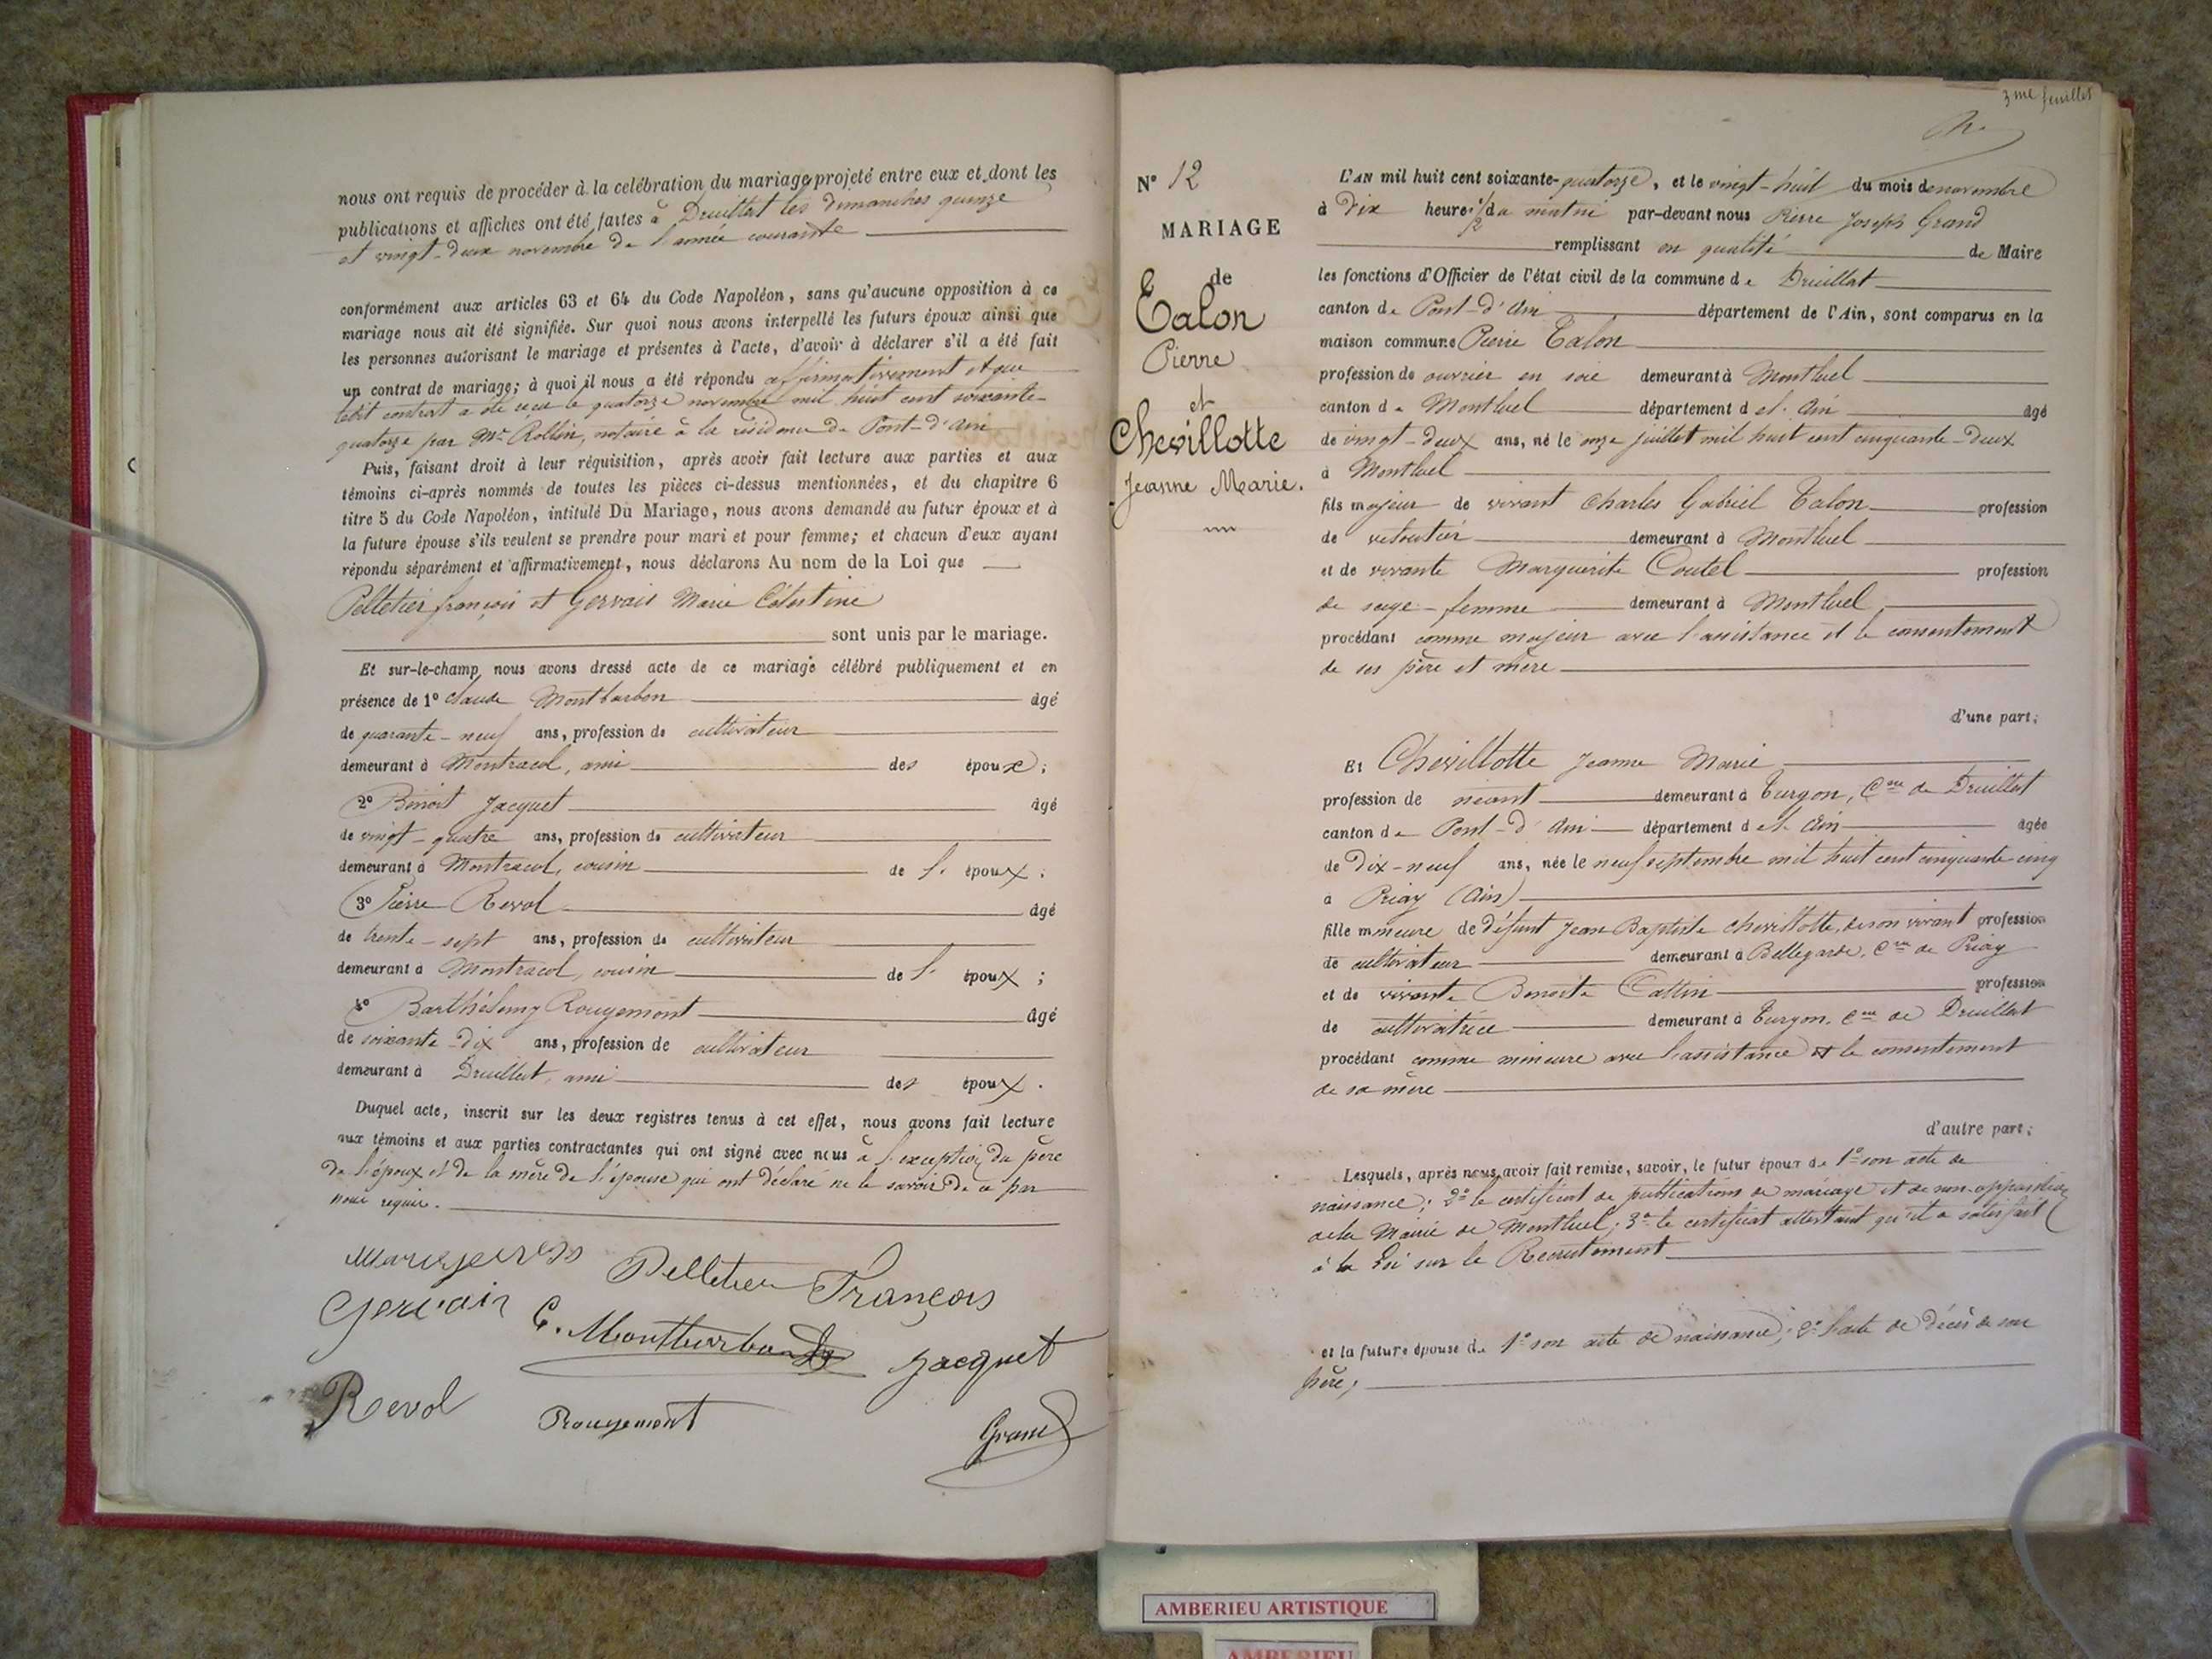 nous ont requis de procéder à la celébration du mariage projeté entre eux et dont les
publications et affiches ont été faites à Druillat les dimanches quinze
et vingt-deux novembre de l'année courante
conformément aux articles 63 et 64 du Code Napoléon, sans qu'aucune opposition à ce
mariage nous ait été signifiée. Sur quoi nous avons interpellé les futurs époux ainsi que
les personnes autorisant le mariage et présentes à l'acte, d'avoir à déclarer s'il a été fait
un contrat de mariage; à quoi il nous a été répondu affirmativement et que
ledit contrat a été reçu le quatorze novembre mil huit cent soixante-
quatorze par Me Rollin, notaire à la résidence de Pont-d'Ain
Puis, faisant droit à leur réquisition, après avoir fait lecture aux parties et aux
témoins ci-après nommés de toutes les pièces ci-dessus mentionnées, et du chapitre 6
titre 5 du Code Napoléon, intitulé Du Mariage, nous avons demandé au futur époux et à
la future épouse s'ils veulent se prendre pour mari et pour femme; et chacun d'eux ayant
répondu séparément et affirmativement, nous déclarons Au nom de la Loi que
Pelletier françois et Gervais Marie Célestine
sont unis par le mariage.
Et sur-le-champ nous avons dressé acte de ce mariage célébré publiquement et en
présence de 1º Claude Montbarbon âgé
de quarante-neuf ans, profession de cultivateur
demeurant à Montracol, ami des époux;
2º Benoit Jacquet âgé
de vingt-quatre ans, profession de cultivateur
demeurant à Montracol, cousin de l' époux;
3º Pierre Revol âgé
de trente-sept ans, profession de cultivateur
demeurant à Montracol, cousin de l' époux;
4º Barthélemy Rougemont âgé
de soixante-dix ans, profession de cultivateur
demeurant à Druillat, ami des époux.
Duquel acte, inscrit sur les deux registres tenus à cet effet, nous avons fait lecture
aux témoins et aux parties contractantes qui ont signé avec nous à l'exception du père
de l'époux et de la mère de l'épouse qui ont déclaré ne le savoir de ce par
nous requis.
Pelletier François
Gervais C. Montbarbon Jacquet
Revol Rougemont Grand
3me feuillet
Nº 12
MARIAGE
de
Talon
Pierre
et
Chevillotte
Jeanne Marie.
L'AN mil huit cent soixante-quatorze, et le vingt-huit du mois de novembre
à dix heures 1/2 du matin par-devant nous Pierre Joseph Grand
remplissant en qualité de Maire
les fonctions d'Officier de l'état civil de la commune de Druillat
canton de Pont-d'Ain département de l'Ain, sont comparus en la
maison commune Pierre Talon
profession de ouvrier en soie demeurant à Montluel
canton de Montluel département de l'Ain âgé
de vingt-deux ans, né le onze juillet mil huit cent cinquante-deux
à Montluel
fils majeur de vivant Charles Gabriel Talon profession
de veloutier demeurant à Montluel
et de vivante Marguerite Coutel profession
de sage-femme demeurant à Montluel
procédant comme majeur avec l'assistance et le consentement
de ses père et mère
d'une part;
Et Chevillotte Jeanne Marie
profession de néant demeurant à Turgon, Cne de Druillat
canton de Pont-d'Ain département de l'Ain âgée
de dix-neuf ans, née le neuf septembre mil huit cent cinquante cinq
à Priay (Ain)
fille mineure de défunt Jean Baptiste Chevillotte, de son vivant profession
de cultivateur demeurant à Bellegarde, Cne de Priay
et de vivante Benoite Cattin profession
de cultivatrice demeurant à Turgon, Cne de Druillat
procédant comme mineure avec l'assistance et le consentement
de sa mère
d'autre part;
Lesquels, après nous avoir fait remise, savoir, le futur époux de 1º son acte de
naissance; 2º le certificat de publications de mariage et de non-opposition
de la Mairie de Montluel; 3º le certificat attestant qu'il a satisfait
à la loi sur le Recrutement
et la future épouse de 1º son acte de naissance; 2º l'acte de décès de son
père;
AMBERIEU ARTISTIQUE
AMBERIEU